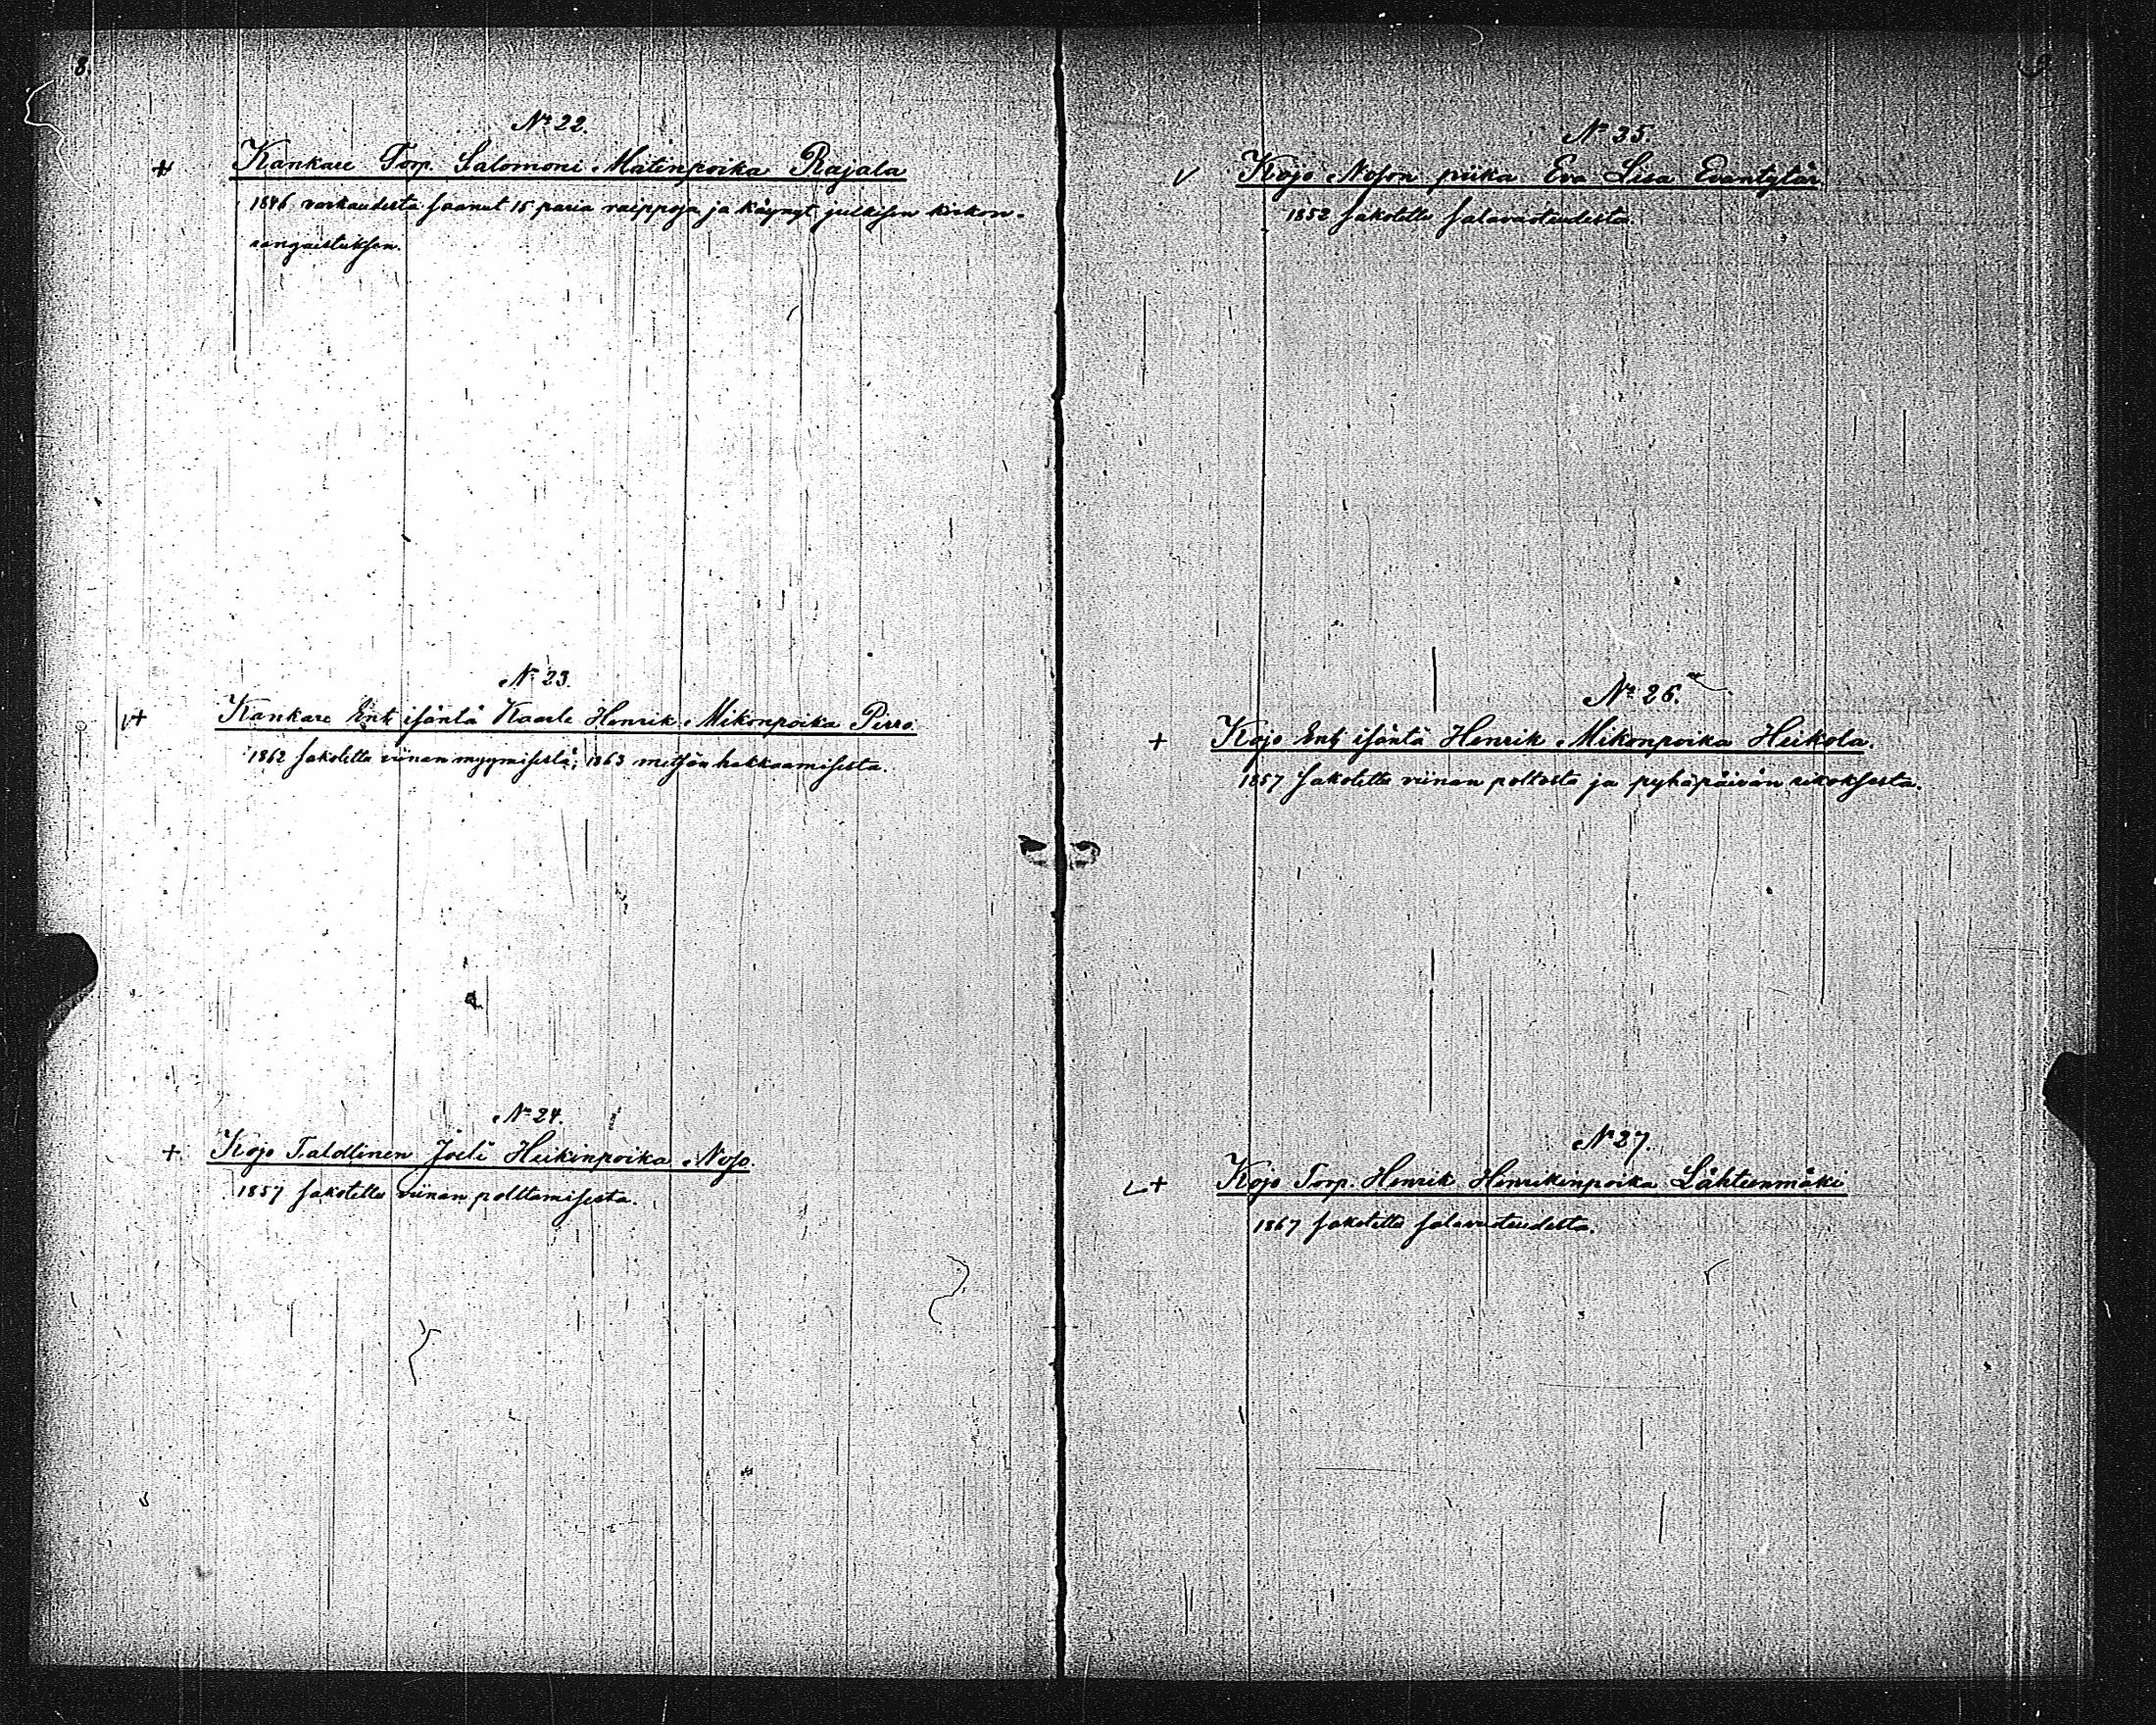 8.
№ 22.
+ Kankare Torp. Salomoni Matinpoika Rajala
1846 varkaudesta saanut 15 paria raippoja ja käynyt julkisen kirkon-
rangaistuksen.
№ 23.
v+ Kankare Ent. isäntä Kaarle Henrik Mikonpoika Pirro.
1862 sakotettu viinan myymisestä; 1863 metsän hakkaamisesta.
№ 24.
+ Kojo Talollinen Joeli Heikinpoika Noso.
1857 sakotettu viinan polttamisesta.
9
№ 35.
v Kojo Noson piika Eva Lisa Evantytär.
1852 sakotettu salavuoteudesta
№ 26.
+ Kojo Ent. isäntä Henrik Mikonpoika Heikola.
1857 sakotettu viinan poltosta ja pyhäpäivän rikoksesta.
№ 27.
v+ Kojo Torp. Henrik Henrikinpoika Lähteenmäki
1867 sakotettu salavuoteudesta.